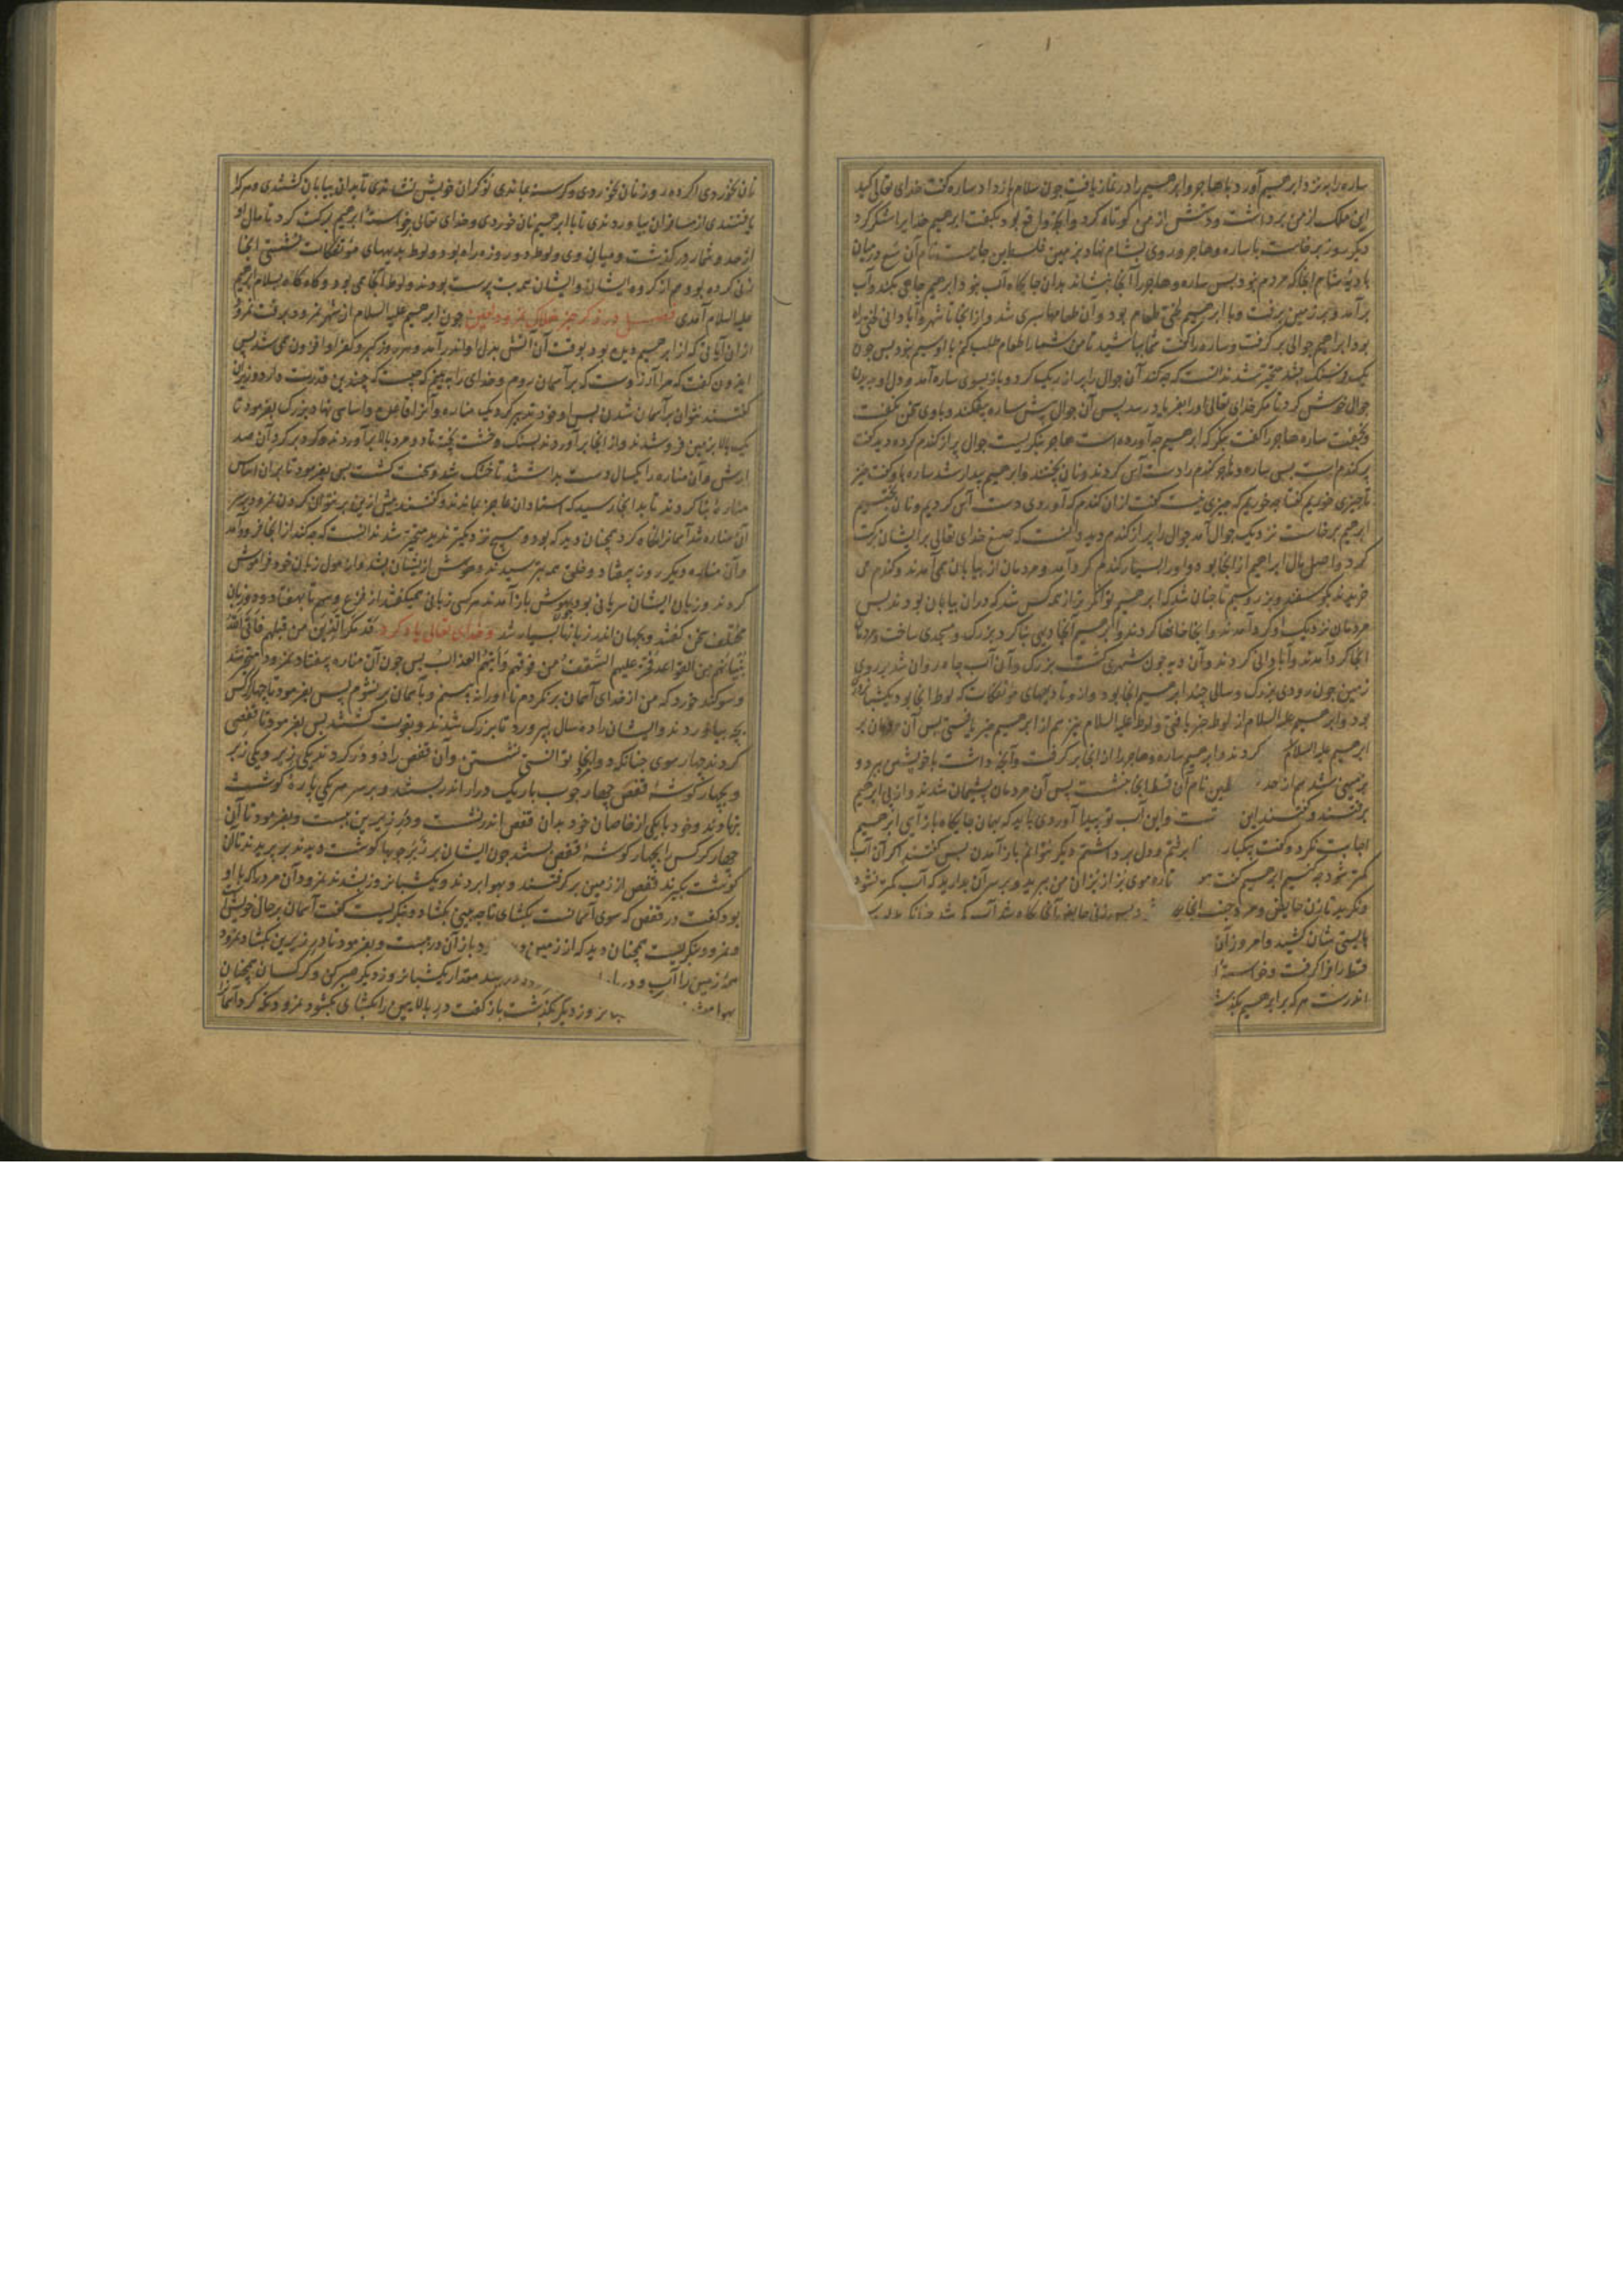 ساره را بنزد ابرهیم آورد با هاجر و ابرهیم را در نماز یافت چون سلام باز داد ساره گفت خدای تعالی کید
این ملک از من برداشت و دستش از من کوتاه کرد و آنچ واقع بود بگفت ابرهیم خدایرا شکر کرد
دیگر روز برخاست با ساره و هاجر و روی بشام نهاد بزمین فلسطین جاییست نام آن سبع در میان
بادیهٔ شام آنجا که مردم نبود پس ساره و هاجر را آنجا بنشاند بدان جایگاه آب نبود ابرهیم چاهی بکند و آب
برآمد و بر زمین برفت و با ابرهیم لختی طعام بود و آن طعامها سپری شد و از آنجا تا شهر و آبادانی لختی راه
بود ابراهیم جوالی برگرفت و ساره را گفت شما بباشید تا من شما را طعام طلب کنم با او سیم نبود پس چون
یک فرسنگ بشد متحیر شد ندانست که چه کند آن جوال را پر از ریگ کرد و باز بسوی ساره آمد و دل او بدان
جوال خوش کرد تا مگر خدای تعالی او را بفریاد رسد پس آن جوال پیش ساره بیفکند و با وی سخن نگفت
و بخفت ساره هاجر را گفت بنگر که ابرهیم چه آورده است هاجر بنگریست جوال پر از گندم کرده دید گفت
پر گندم است پس ساره و هاجر گندم را دست آس کردند و نان پختند و ابرهیم بیدار شد ساره باو گفت خیز
تا چیزی خوریم گفتا چه خوریم که چیزی نیست گفت از آن گندم که آوردی دست آس کردیم و نان پختیم
ابرهیم برخاست نزدیک جوال آمد جوال را پر از گندم دید دانست که صنع خدای تعالی بر ایشان برکت
کرد و اصل مال ابراهیم از آنجا بود و او را بسیار گندم گرد آمد و مردمان از بیابان همی آمدند و گندم می
خریدند بگوسفند و بز و سیم تا چنان شد که ابرهیم توانگر تر از همه کس شد که در آن بیابان بودند پس
مردمان نزدیک او گرد آمدند و آنجا خانها کردند و ابرهیم آنجا دیهی بنا کرد بزرگ و مسجدی ساخت و مردمان
آنجا گرد آمدند و آبادانی کردند و آن دیه چون شهری گشت بزرگ و آن آب چاه روان شد بر روی
زمین چون رودی بزرگ و سالی چند ابرهیم آنجا بود و از و تا دیههای مؤتفکات که لوط آنجا بود یکشبانروز
بود و ابرهیم علیه السلام از لوط خبر یافتی و لوط علیه السلام نیز هم از ابرهیم خبر یافتی پس آن مردمان بر
ابرهیم علیه السلام کردند و ابرهیم ساره و هاجر را از آنجا برگرفت و آنچه داشت با خویشتن ببرد و
بزمینی شد هم از حد طین نام آن قط آنجا بنشست پس آن مردمان پشیمان شدند و از پی ابرهیم
برفتند و گفتند این تست و این آب تو پیدا آوردی باید که بهمان جایگاه باز آیی ابرهیم
اجابت نکرد و گفت یکبار برفتم و دل برداشتم دیگر نتوانم باز آمدن پس گفتند اگر آن آب
کمتر شود چه کنیم ابرهیم گفت تازه موی بز از بزان من ببرید و بر سر آن بدارید که آب کمتر نشود
و نگرید تا زن حایض و مرد جنب آنجا
بایستی شان کشید و امروز آن
قط را فرا گرفت و خواسته
اندرست هر که بر ابرهیم بگذشت
نان نخوردی اگر ده روز نان نخوردی و گرسنه بماندی نوکران خویش نشاندی تا بدان بیابان گشتندی و هر که را
یافتندی از مسافران بیاوردندی تا با ابرهیم نان خوردی و خدای تعالی بر خواستهٔ ابرهیم برکت کرد تا مال او
از حد و شمار درگذشت و میان وی و لوط دو روزه راه بود و لوط بدیههای مؤتفکات نشستی آنجا
زنی کرده بود هم از گروه ایشان و ایشان همه بت پرست بودند و لوط آنجا همی بود و گاه گاه بسلام ابرهیم
علیه السلام آمدی فصل در ذکر خبر هلاک نمرود لعین چون ابرهیم علیه السلام از شهر نمرود برفت نمرود
از آن آیاتی که از ابرهیم دیده بود بوقت آن آتش بدل او اندر آمد و هر روز کبر و کفر او افزون همی شد پس
ایدون گفت که مرا آرزوست که بر آسمان روم و خدای را ببینم که چیست که چندین قدرت دارد وزیران
گفتند نتوان بر آسمان شدن پس او خود تدبیر کرد یک مناره و آنرا قاعده و اساسی نهاد بزرگ بفرمود تا
یک بالا بزمین فرو شدند و از آنجا برآوردند بسنگ و خشت پخته تا دو مرد بالا برآوردند و گرد بر گرد آن صد
ارش و آن مناره را یکسال دست بداشتند تا خشک شد و سخت گشت پس بفرمود تا بران اساس
منارهٔ بنا کردند تا بدانجا رسید که استادان عاجز بماندند و گفتند بیش ازین بر نتوان کردن نمرود بر سر
آن مناره شد آسمانرا نگاه کرد همچنان دید که بود و هیچ نزدیکتر ندید متحیر شد ندانست که چه کند از آنجا فرود آمد
و آن مناره دیگر روز بیفتاد و خلق همه بترسیدند و هوش از ایشان بشد و از هول زبان خود فراموش
کردند و زبان ایشان سریانی بود چون بهوش باز آمدند هر کسی زبانی همیگفتند از فزع و بیم تا بهفتاد و دو زبان
مختلف سخن گفتند و بجهان اندر زبانها بسیار شد و خدای تعالی یاد کرد قد مکر الذین من قبلهم فاتی الله
بنیانهم من القواعد فخر علیهم السقف من فوقهم و اتیهم العذاب پس چون آن مناره بیفتاد نمرود متحیر شد
و سوگند خورد که من از خدای آسمان برنگردم تا او را نه بینم و بآسمان بر نشوم پس بفرمود تا چهار کرکس
بچه بیاوردند و ایشان را ده سال بپرورد تا بزرگ شدند و بقوت گشتند پس بفرمود تا قفصی
کردند چهار سوی چنانکه دو آنجا توانستی نشستن و آن قفص را دو در کرد یکی زیر و یکی زبر
و بچهار گوشهٔ قفص چهار چوب باریک دراز اندر بستند و بر سر هر یکی پارهٔ گوشت
بنهادند و خود با یکی از خاصان خود بدان قفص اندر نشست و در زیرین ببست و بفرمود تا آن
چهار کرکس را بچهار گوشهٔ قفص بستند چون ایشان بر زبر چوبها گوشت دیدند بر پریدند تا آن
گوشت بگیرند قفص از زمین برگرفتند و بهوا بردند و یکشبانروز بشدند نمرود آن مرد را که با او
بود گفت در قفص که سوی آسمانست بگشای تا چه بینی بگشاد و بنگریست گفت آسمان بر حال خویش است
و نمرود بنگریست همچنان دید که از زمین باز آن در ببست و بفرمود تا در زیرین بگشاد نمرود
همهٔ زمین را آب و دریا مقدار یکشبانروز دیگر صبر کن و کرکسان همچنان
بهوا روز دیگر بگذشت باز گفت در بالایین را بگشای بگشود نمرود نگه کرد آسمانرا